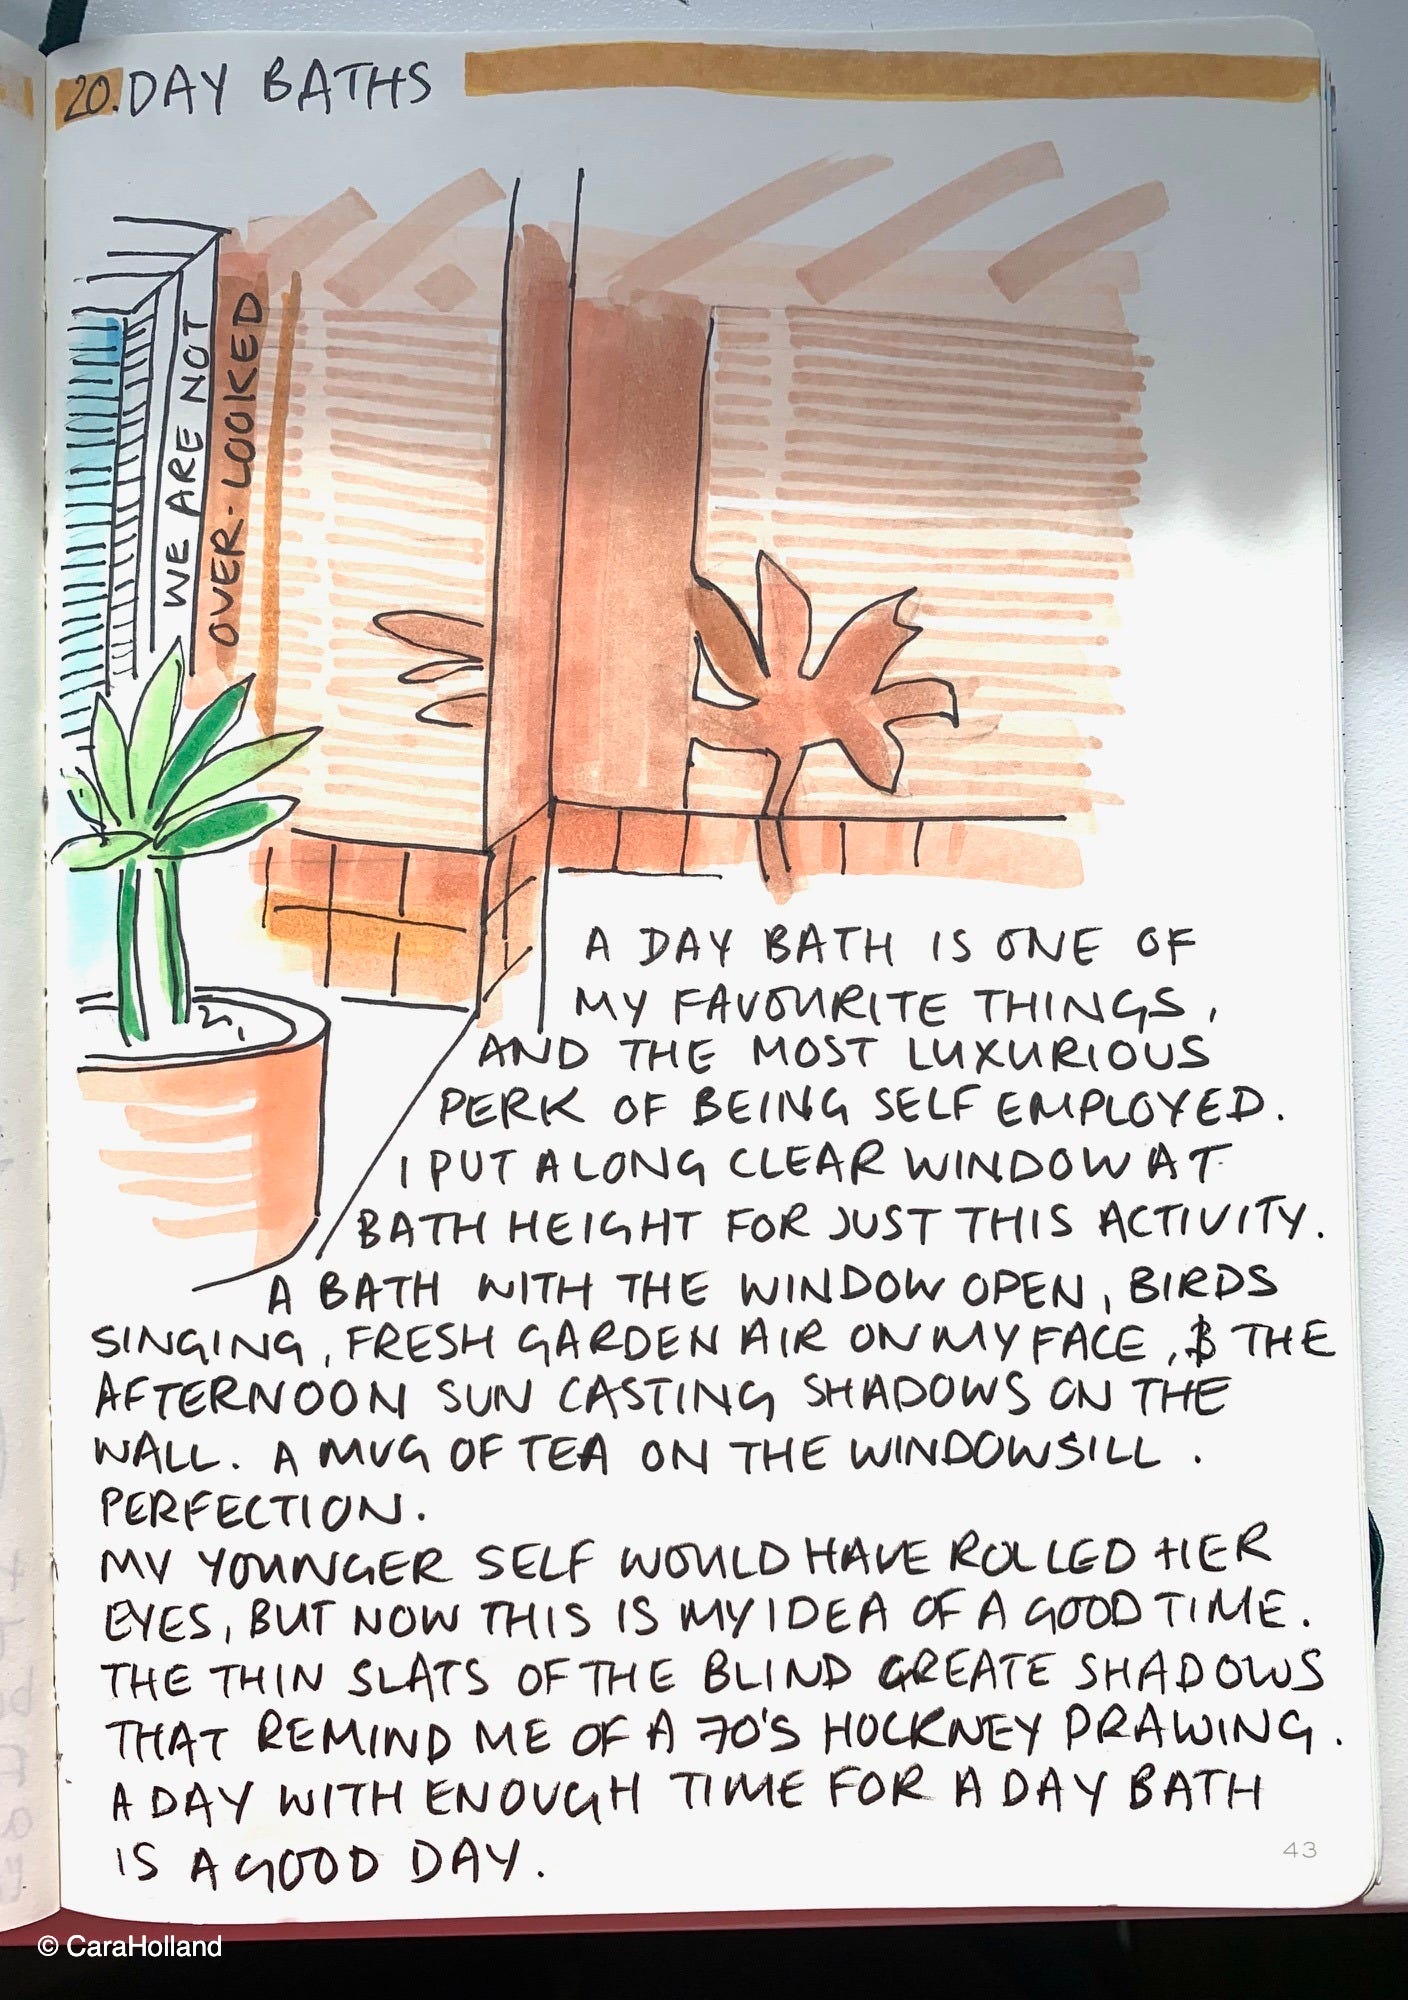 20. DAY BATHS
WE ARE NOT
OVER-LOOKED
A DAY BATH IS ONE OF
MY FAVOURITE THINGS,
AND THE MOST LUXURIOUS
PERK OF BEING SELF EMPLOYED.
I PUT A LONG CLEAR WINDOW AT
BATH HEIGHT FOR JUST THIS ACTIVITY.
A BATH WITH THE WINDOW OPEN, BIRDS
SINGING, FRESH GARDEN AIR ON MY FACE, & THE
AFTERNOON SUN CASTING SHADOWS ON THE
WALL. A MUG OF TEA ON THE WINDOWSILL.
PERFECTION.
MY YOUNGER SELF WOULD HAVE ROLLED HER
EYES, BUT NOW THIS IS MY IDEA OF A GOOD TIME.
THE THIN SLATS OF THE BLIND CREATE SHADOWS
THAT REMIND ME OF A 70'S HOCKNEY DRAWING.
A DAY WITH ENOUGH TIME FOR A DAY BATH
IS A GOOD DAY.
43
© CaraHolland